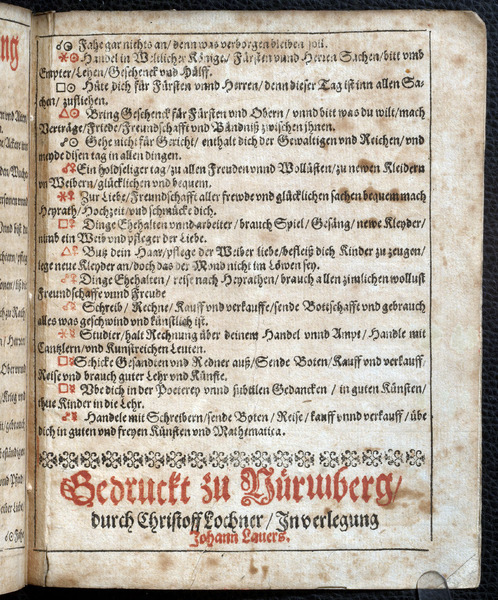 ☍☉ Fahe gar nichts an/ denn was verborgen bleiben soll.
⚹☉ Handel in Weltlicher Könige/ Fürsten vnnd Herren Sachen/ bitt vmb
Empter/ Lehen/ Geschenck vnd Hülff.
□☉ Hüte dich für Fürsten vnnd Herren/ denn dieser Tag ist inn allen Sa-
chen/ zufliehen.
△☉ Bring Geschenck für Fürsten vnd Obern/ vnnd bitt was du wilt/ mach
Verträge/ Friede/ Freundschafft vnd Bändniß zwischen ihnen.
☍☉ Gehe nicht für Gericht/ enthalt dich der Gewaltigen vnd Reichen/ vnd
meyde disen tag in allen dingen.
☌♀ Ein holdseliger tag/ zu allen Freuden vnnd Wollüsten/ zu newen Kleidern
vn Weibern/ glücklichen vnd bequem.
⚹♀ Zur Liebe/ Freundschafft aller frewde vnd glücklichen sachen bequem mach
Heyrath/ Hochzeit/ vnd schmücke dich.
□♀ Dinge Ehehalten vnnd arbeiter/ brauch Spiel/ Gesäng/ newe Kleyder/
nimb ein Weib vnd pfleger der Liebe.
△♀ Butz dein Haar/ pflege der Weiber liebe/ befleiß dich Kinder zu zeugen/
lege neue Kleyder an/ doch das der Mond nicht im Löwen sey.
☍♀ Dinge Ehehalten/ reise nach Heyrathen/ brauch allen zimlichen wollust
Freundschafft vnnd Freude
☌☿ Schreib/ Rechne/ Kauff vnd verkauffe/ sende Bottschafft vnd gebrauch
alles was geschwind vnd künstlich ist.
⚹☿ Studier/ halt Rechnung über deinem Handel vnnd Ampt/ Handle mit
Cantzlern/ vnd Kunstreichen Leuten.
□☿ Schicke Gesandten vnd Redner auß/ Sende Boten/ Kauff vnd verkauff
Reise vnd brauch guter Lehr vnd Künste.
□☿ Vbe dich in der Poeterey vnnd subtilen Gedancken/ in guten Künsten/
thue Kinder in die Lehr.
☍☿ Handele mit Schreibern/ sende Boten/ Reise/ kauff vnnd verkauff/ übe
dich in guten vnd freyen Künsten vnd Mathematica.
Gedruckt zu Nürmberg/
durch Christoff Lochner/ In verlegung
Johann Lauers.